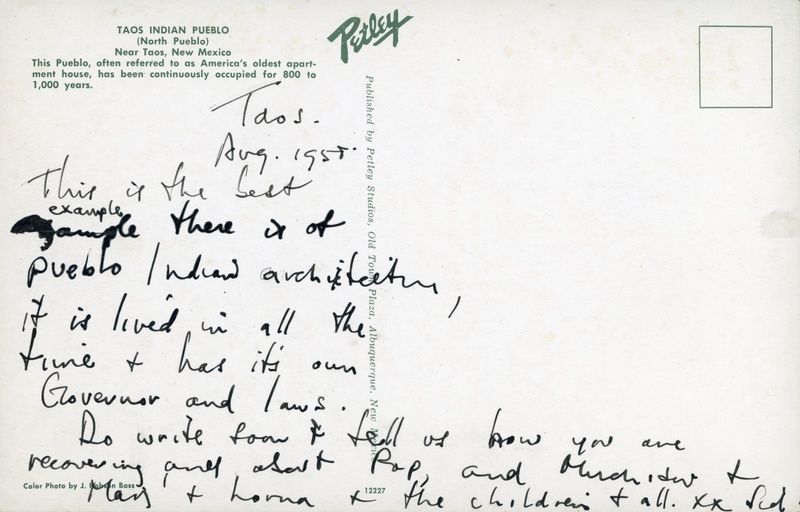 TAOS INDIAN PUEBLO
(North Pueblo)
Near Taos, New Mexico
This Pueblo, often referred to as America's oldest apart-
ment house, has been continuously occupied for 800 to
1,000 years.
Petley
Published by Petley Studios, Old Town Plaza, Albuquerque, New Mexico
Taos.
Aug. 1955.
This is the best
example
example there is of
pueblo Indian architecture,
it is lived in all the
time + has its own
Governor and laws.
Do write soon & tell us how you are
recovering and about Pop, and +
Mary + Lorna + the children + all. xx
Color Photo by J. Hobson Bass
12227